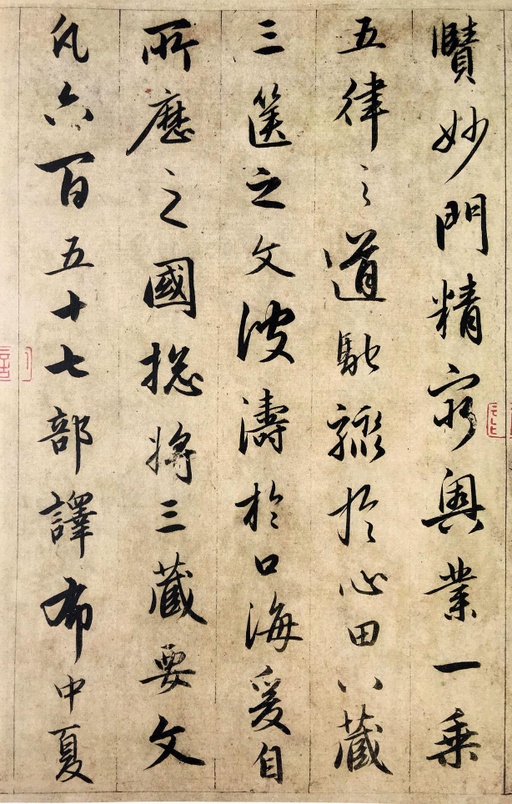 賾妙門精窮奧業一乘
五律之道馳驟於心田八藏
三篋之文波濤於口海爰自
所歷之國揔將三藏要文
凡六百五十七部譯布中夏